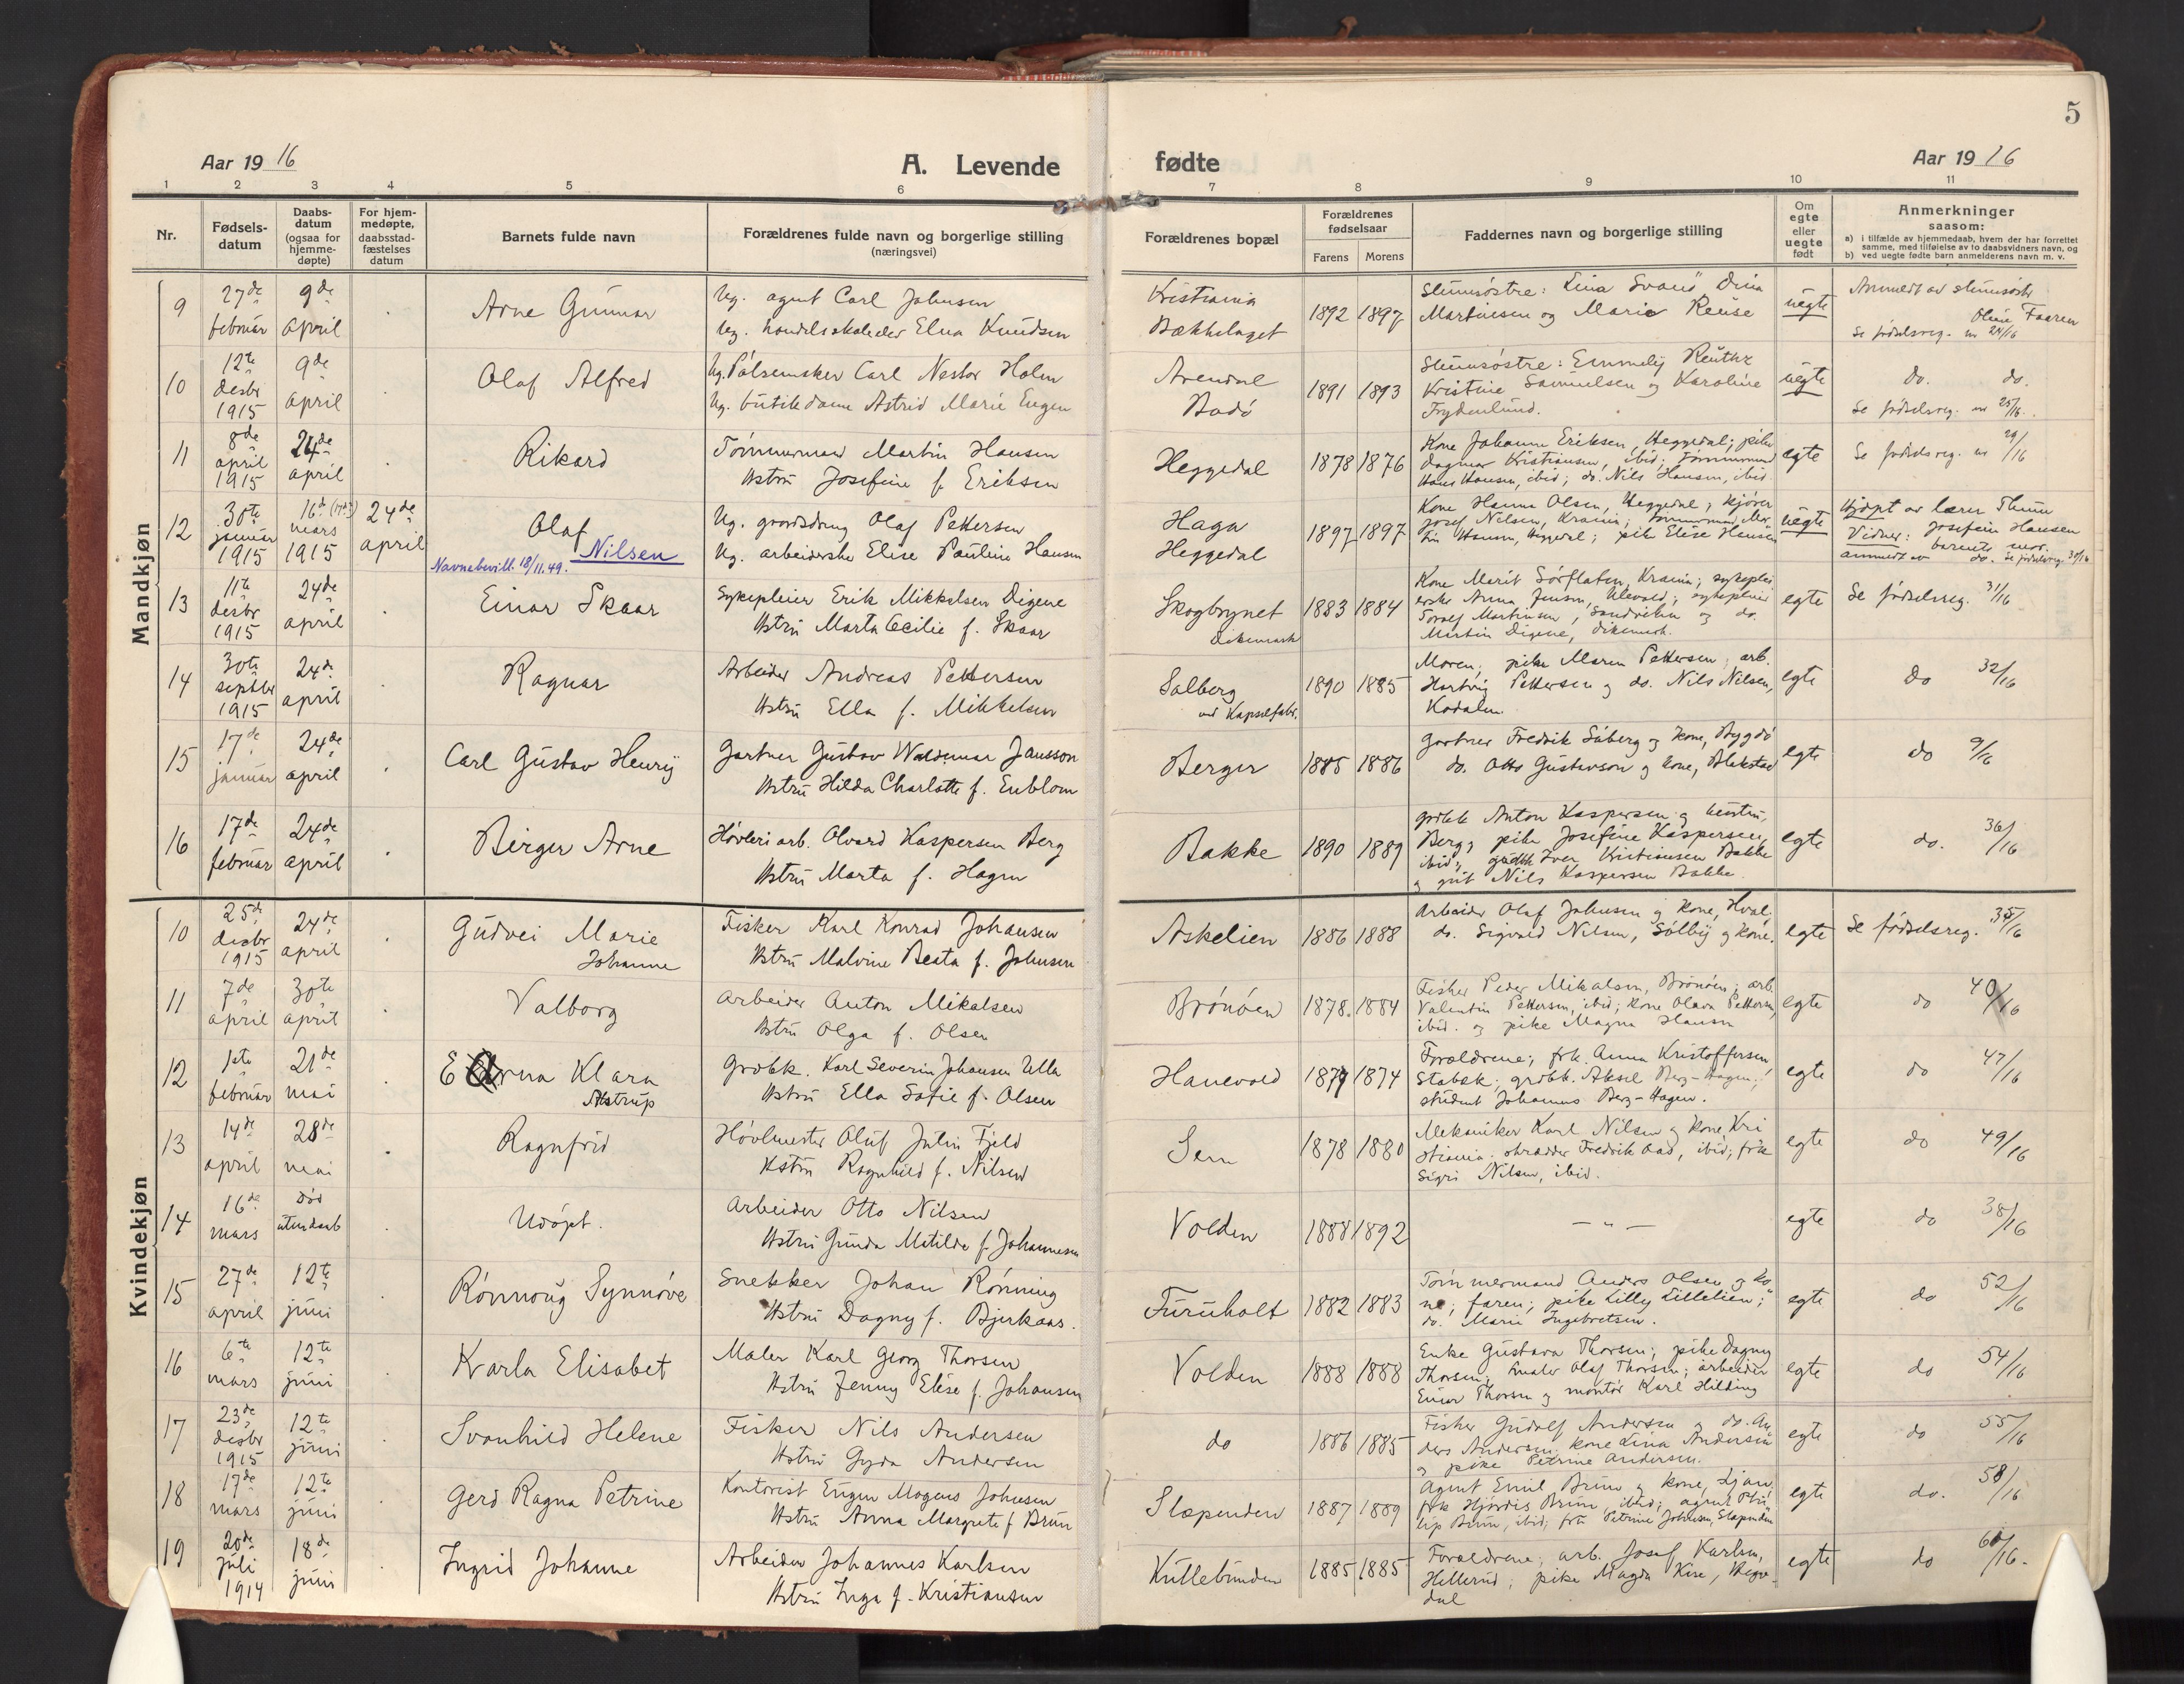 5
Aar 19 16
A. Levende fødte
Aar 19 16
1 2 3 4 5 6 7 8 9 10 11
Nr.
Fødsels-
datum
Daabs-
datum
(ogsaa for
hjemme-
døpte)
For hjem-
medøpte,
daabsstad-
fæstelses
datum
Barnets fulde navn
Forældrenes fulde navn og borgerlige stilling
(næringsvei)
Forældrenes bopæl
Forældrenes
fødselsaar
Farens Morens
Faddernes navn og borgerlige stilling
Om
egte
eller
uegte
født
Anmerkninger
saasom:
a) i tilfælde av hjemmedaab, hvem der har forrettet
samme, med tilføielse av to daabsvidners navn, og
b) ved uegte fødte barn anmelderens navn m. v.
Mandkjøn
9
27de februar
9de april
Arne Gunnar
Ug. agent Carl Johnsen
Ug. handelsskoleelev Elna Knudsen
Kristiania
Bækkelaget
1892 1897
Martinesen og Marie
uegte
Se fødselsreg. nr 24/16
10
12te desbr 1915
9de april
Olaf Alfred
Ug. Pølsemaker Carl Nestor Holm
Ug. butikdame Astrid Marie Eugen
Arendal
Bodø
1891 1893
Kristine Samuelsen og Karoline
Frydenlund.
uegte
do. do.
Se fødselsreg. nr 25/16.
11
8de april 1915
24de april
Rikard
Tømmermand Martin Hansen
Hstru Josefine f. Eriksen
Heggedal
1878 1876
Kone Johanne Eriksen, Heggedal; pike
Dagmar Kristiansen, ibid; tømmermand
Hans Hansen, ibid; do. Nils Hansen, ibid
egte
Se fødselsreg. nr 29/16
12
30te januar 1915
16de mars 1915
24de april
Olaf
Nilsen
Navnebevill. 18/11.49.
Ug. gaardsdreng Olaf Pettersen
Ug. arbeiderske Elise Pauline Hansen
Haga
Heggedal
1897 1897
Kone Hanna Olsen, Heggedal; kjører
Josef Nilsen, Krania; tømmermand Mar-
tin Hansen, Heggedal; pike Elise Hansen
uegte
Hjdøpt av lærer Thune
Vidner: Josefine Hansen
barnets mor.
anmeldt av do. Se fødselsreg. 30/16
13
11te desbr 1915
24de april
Einar Skaar
Sykepleier Erik Mikkelsen Digene
Hstru Marta Cecilie f. Skaar
Skogbrynet
Dikemark
1883 1884
Martin Digene, Dikemark.
egte
Se fødselsreg. 31/16
14
30te septbr 1915
24de april
Ragnar
Arbeider Andreas Pettersen
Hstru Ella f. Mikkelsen
Solberg
ved Kapselfabr.
1890 1885
Moren; pike Maren Pettersen; arb.
Hartvig Pettersen og do. Nils Nilsen,
egte
do 32/16
15
17de januar
24de april
Carl Gustav Henry
Gartner Gustav Waldemar Jansson
Hstru Hilda Charlotte f. Enblom
Berger
1885 1886
Gartner Fredrik Såberg og kone, Bygdø
do. Otto Gustavson og kone, Blakstad
egte
do 9/16
16
17de februar
24de april
Birger Arne
Høvleriarb. Olvard Kaspersen Berg
Hstru Marta f. Hagen
Bakke
1890 1889
grdbk Anton Kaspersen og hustru,
Berg; pike Josefine Kaspersen,
ibid; Iver Kristiansen Bakke
og gut Nils Kaspersen Bakke
egte
do. 36/16
Kvindekjøn
10
25de desbr 1915
24de april
Gudvei Marie
Johanne
Fisker Karl Konrad Johansen
Hstru Malvine Beata f. Johnsen
Askelien
1886 1888
Arbeider Olaf Johnsen og kone, Hval;
do. Sigvald Nilsen, Sølby og kone.
egte
Se fødselsreg. 35/16
11
7de april
30te april
Valborg
Arbeider Anton Mikalsen
Hstru Olga f. Olsen
Brønøen
1878. 1884
Fisker Peder Mikalsen, Brønøen; arb.
Valentin Pettersen, ibid; kone Olava Pettersen,
ibid. og pike Magna Hansen
egte
do 40/16
12
1ste februar
21de mai
Erna Klara
Astrup
Grdbk. Karl Severin Johansen Ulla
Hstru Ella Sofie f. Olsen
Hanevold
1879 1874
Forældrene; frk. Anna Kristoffersen,
Stabæk; grdbk. Aksel Berg-Hagen;
student Johannes Berg-Hagen.
egte
do 47/16
13
14de april
28de mai
Ragnfrid
Høvlmester Oluf Julin Fjeld
Hstru Ragnhild f. Nilsen
Sem
1878 1880
Mekaniker Karl Nilsen og kone Kri
stiania; skrædder Fredrik Aas, ibid; frk
Sigri Nilsen, ibid.
egte
do 49/16
14
16de mars
død utendaab
Udøpt.
Arbeider Otto Nilsen
Hstru Gunda Matilde f. Johannesen
Volden
1888 1892
— " —
egte
do 38/16
15
27de april
12te juni
Rønnoug Synnøve
Snekker Johan Rønning
Hstru Dagny f. Bjerkaas.
Furuholt
1882 1883
Tømmermand Anders Olsen og ko
ne; faren; pike Lilly Lillelien;
do. Marie Ingebretsen.
egte
do 52/16
16
6te mars
12te juni
Karla Elisabet
Maler Karl Georg Thorsen
Hstru Jenny Elise f. Johansen
Volden
1888 1888
Enke Gustava Thorsen; pike Dagny
Thorsen; maler Olaf Thorsen; arbeider
Einar Thorsen og montør Karl Hilding
egte
do 54/16
17
23de desbr 1915
12te juni
Svanhild Helene
Fisker Nils Andersen
Hstru Gyda Andersen
do
1886 1885
Fisker Gudolf Andersen og do. An
ders Andersen; kone Lina Andersen
og pike Petrine Andersen.
egte
do 55/16
18
17de mars
12te juni
Gerd Ragna Petrine
Kontorist Eugen Mogens Johnsen
Hstru Anna Margrete f Brun
Slæpenden
1887 1889
Agent Emil Brun og kone, Ljan;
frk Hjørdis Brun, ibid; agent Phi
lip Brun, ibid; fru Petrine Johnsen, Slæpenden
egte
do. 58/16
19
20de juli 1914
18de juni
Ingrid Johanne
Arbeider Johannes Karlsen
Hstru Inga f. Kristiansen
Kullebunden
1885 1885
Forældrene; arb. Josef Karlsen,
Hellerud; pike Magda Kise, Hegge-
dal
egte
do 60/16.